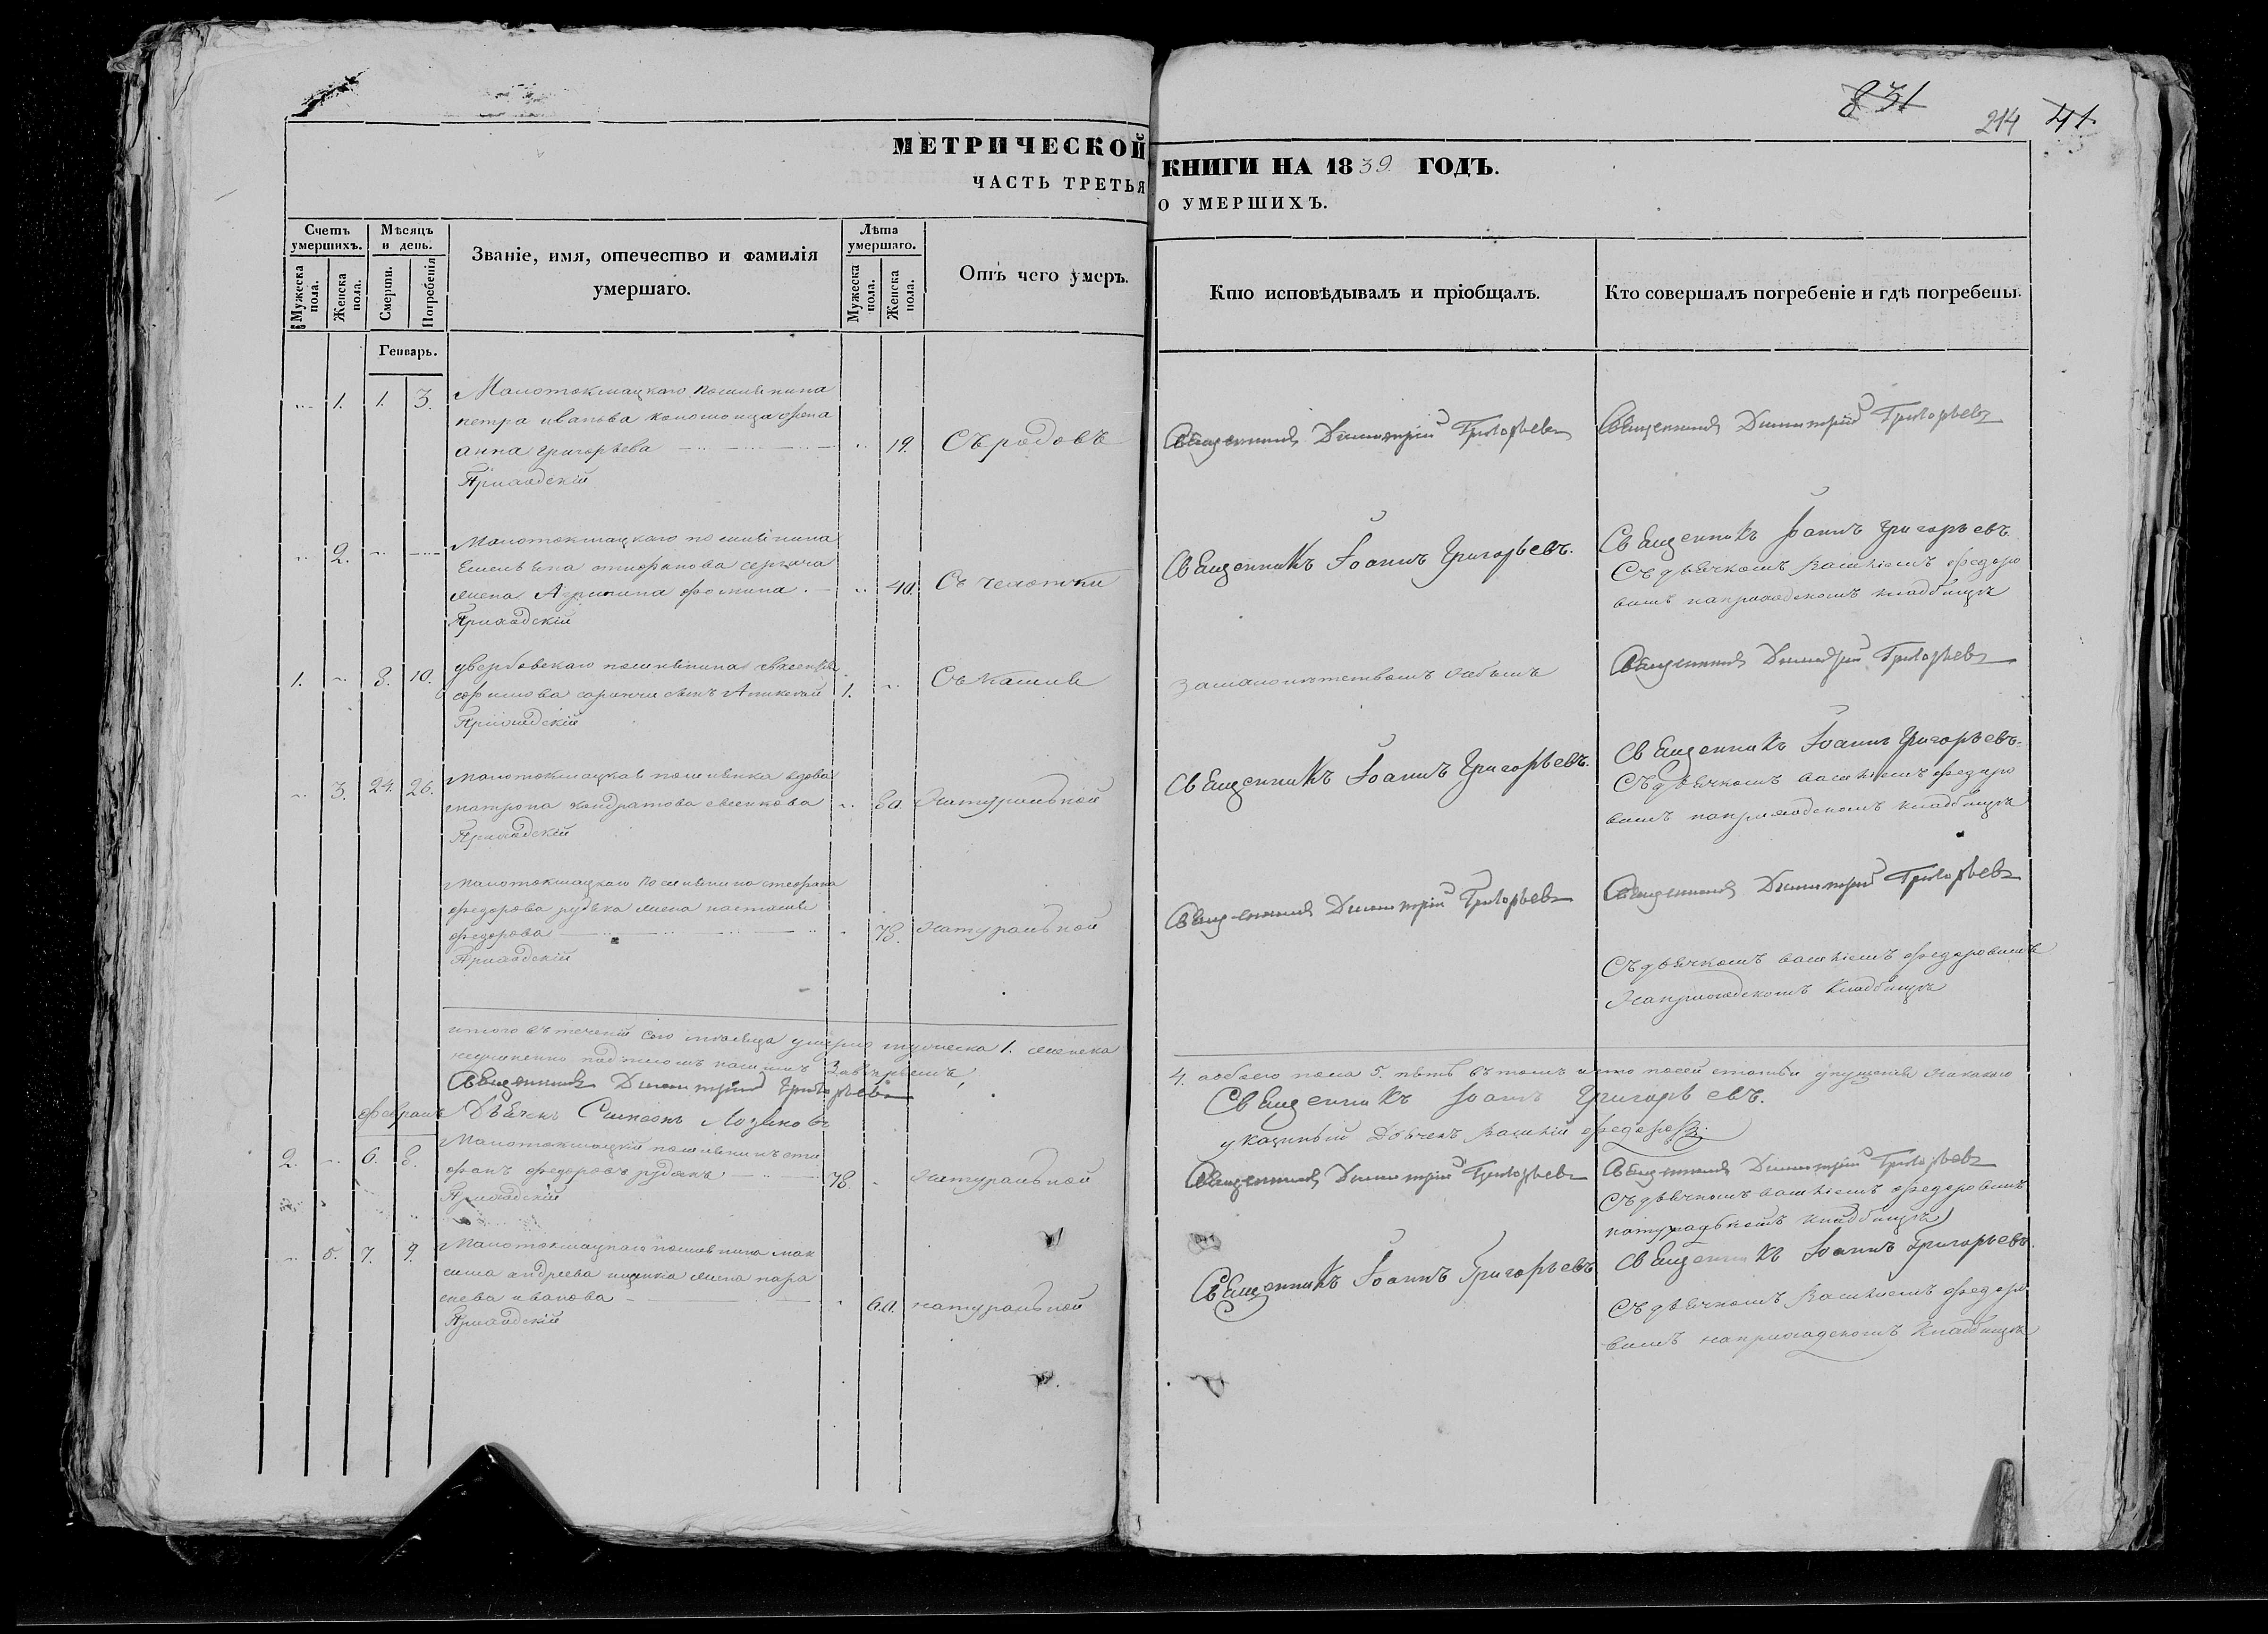 831
214 41.
МЕТРИЧЕСКОЙ КНИГИ НА 1839. ГОДЪ.
ЧАСТЬ ТРЕТЬЯ О УМЕРШИХЪ.
Счетъ умершихъ.
Мужеска пола.
Женска пола.
Мѣсяцъ и день.
Смерти.
Погребенія
Званіе, имя, отечество и фамилія
умершаго.
Лѣта умершаго.
Мужеска пола.
Женска пола.
Отъ чего умеръ.
Кто исповѣдывалъ и пріобщалъ.
Кто совершалъ погребеніе и гдѣ погребены.
Генварь.
1. 1. 3. Малотокмацкаго поселянина
петра иванова коломойца жена
анна григорьева 19. Съ родовъ
Приходскій
Священникъ Димитрій Григорьевъ
Священникъ Димитрій Григорьевъ
2. Малотокмацкаго поселянина
жена Агрипина фомина 40. Съ чехотки
Приходскій
Священникъ Іоаннъ Григорьевъ.
Священникъ Іоаннъ Григорьевъ.
Съ дьячкомъ Василіемъ федоро
вымъ наприходскомъ кладбищѣ
1. 8. 10. поселянина
сынъ 1. Съ кашля
Приходскій
Священникъ Димитрій Григорьевъ
3. 24. 26. Малотокмацкая поселянка вдова
матрона кондратова 80 Натуральной
Приходскій
Священникъ Іоаннъ Григорьевъ.
Священникъ Іоаннъ Григорьевъ.
Съ дьячкомъ василіемъ федоро
вымъ наприходскомъ кладбищѣ
Малотокмацкаго поселянина стефана
федорова рудька жена наталія
федорова 78. Натуральной
Приходскій
Священникъ Димитрій Григорьевъ
Священникъ Димитрій Григорьевъ
Съ дьячкомъ василіемъ федоровымъ
Наприходскомъ Кладбищѣ
итого въ теченіи сего мѣсяца умерло мужеска 1. женска
4. обоего пола 5. пять въ томъ что посей статьи упущенія никакого
Священникъ Димитрій Григорьевъ
Священникъ Іоаннъ Григорьевъ.
февраль Дьячекъ Симеонъ
Дьячекъ Василій федоровъ
2. 6. 8. Малотокмацкій поселянинъ сте
фанъ федоровъ рудакъ 78. Натуральной
Приходскій
Священникъ Димитрій Григорьевъ
Священникъ Димитрій Григорьевъ
Съ дьячкомъ василіемъ федоровымъ
кладбищѣ
5. 7. 9. Малотокмацкаго поселянина мак
сима андреева жена пара
скева иванова 60. натуральной
Приходскій
Священникъ Іоаннъ Григорьевъ
Священникъ Іоаннъ Григорьевъ.
Съ дьячкомъ Василіемъ федоро
вымъ наприходскомъ Кладбищѣ